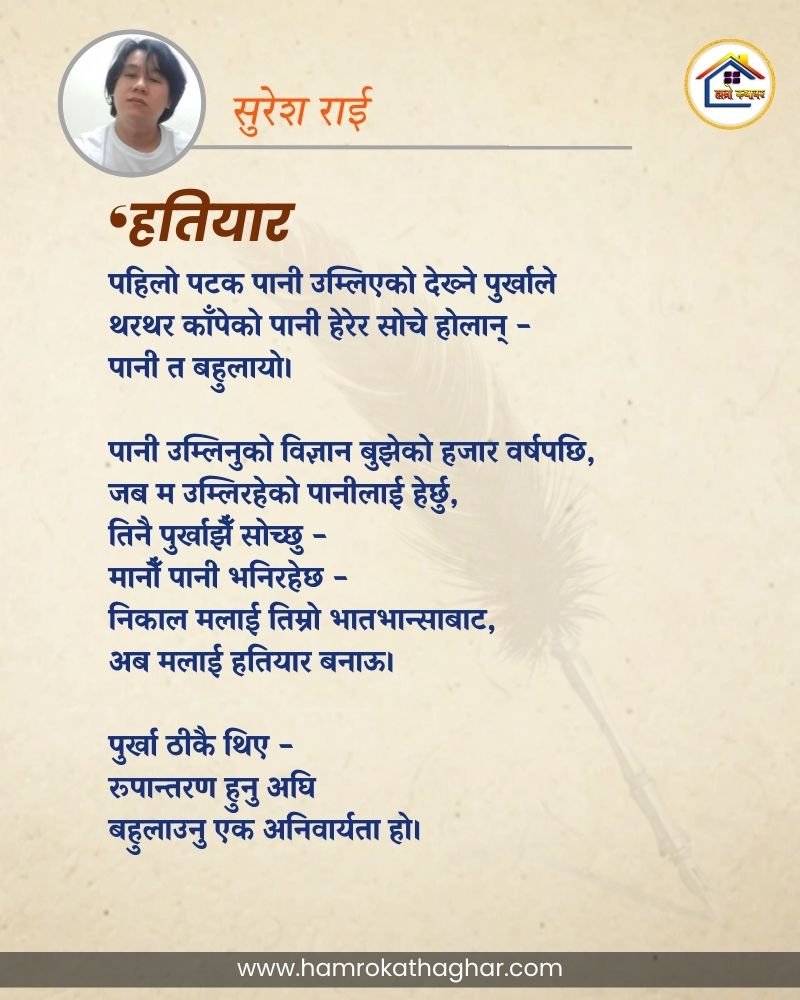 सुरेश राई
हाम्रो कथाघर
‘हतियार
पहिलो पटक पानी उम्लिएको देख्ने पुर्खाले
थरथर काँपेको पानी हेरेर सोचे होलान् -
पानी त बहुलायो।
पानी उम्लिनुको विज्ञान बुझेको हजार वर्षपछि,
जब म उम्लिरहेको पानीलाई हेर्छु,
तिनै पुर्खाझैँ सोच्छु -
मानौँ पानी भनिरहेछ -
निकाल मलाई तिम्रो भातभान्साबाट,
अब मलाई हतियार बनाऊ।
पुर्खा ठीकै थिए -
रुपान्तरण हुनु अघि
बहुलाउनु एक अनिवार्यता हो।
www.hamrokathaghar.com